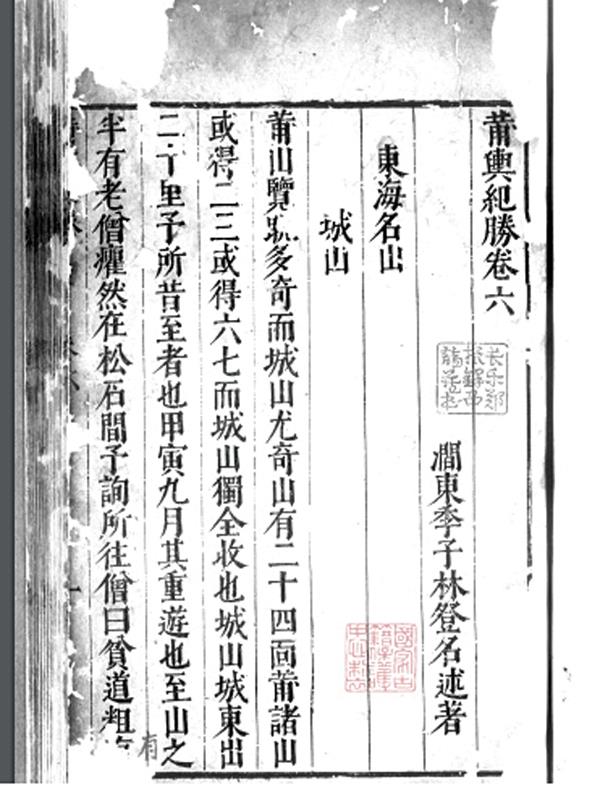 莆輿紀勝卷六
澗東季子林登名述著
東海名山
城山
莆山覽眺多奇而城山尤奇山有二十四面莆諸山
或得二三或得六七而城山獨全收也城山城東出
二十里予所昔至者也甲寅九月其重遊也至山之
半有老僧癯然在松石間予詢所往僧曰貧道粗有
长乐郑
振鐸西
諦藏书